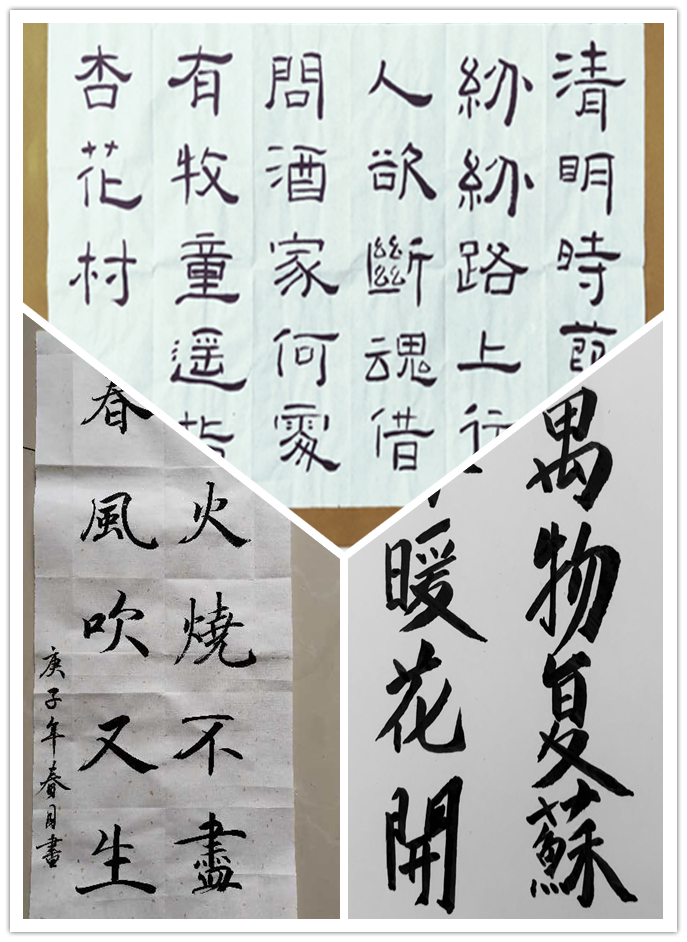 清明時節
紛紛路上行
人欲斷魂借
問酒家何處
有牧童遥指
杏花村
火燒不盡
春風吹又生
庚子年春月書
萬物复蘇
暖花開